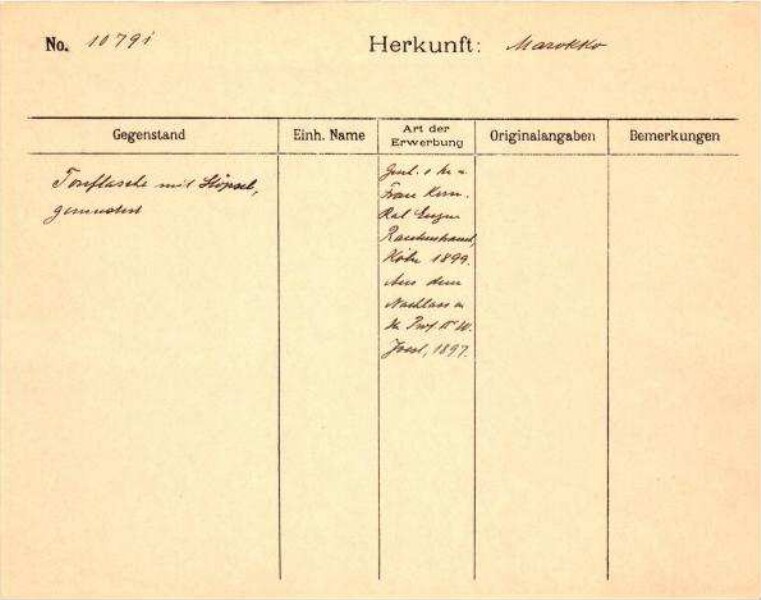 No. 1079i Herkunft: Marokko
Gegenstand Einh. Name Art der Erwerbung Originalangaben Bemerkungen
Tonflasche mit Stöpsel,
gemustert
Gesch. v. H. u.
Frau Kom.
Rat Eugen
Rautenstrauch,
Köln 1899.
Aus dem
Nachlass v.
H. Prof Dr W.
Joest, 1897.